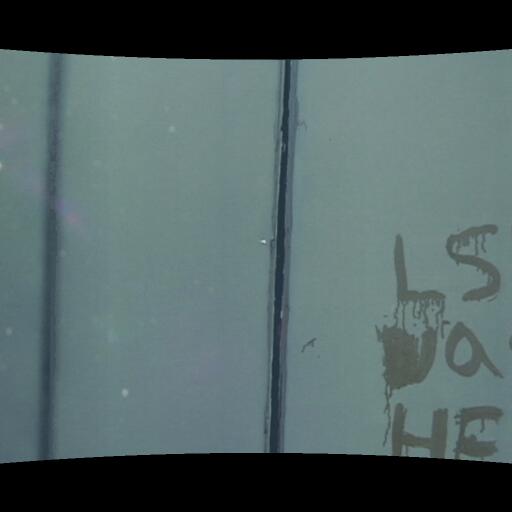 LS
Da
HE